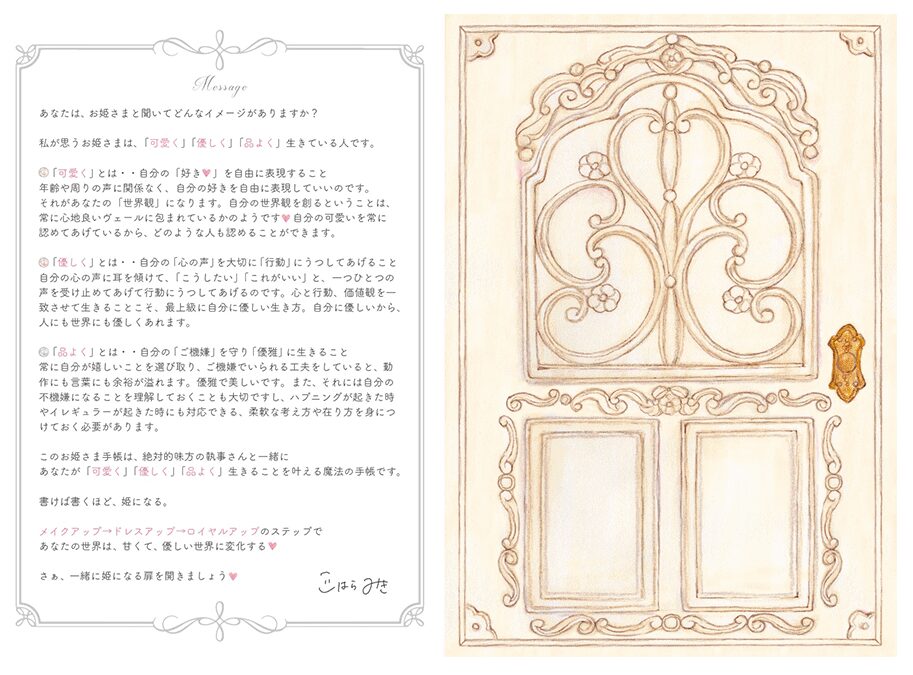 Message
あなたは、お姫さまと聞いてどんなイメージがありますか？
私が思うお姫さまは、「可愛く」「優しく」「品よく」生きている人です。
「可愛く」とは・・自分の「好き♥」を自由に表現すること
年齢や周りの声に関係なく、自分の好きを自由に表現していいのです。
それがあなたの「世界観」になります。自分の世界観を創るということは、
常に心地良いヴェールに包まれているかのようです♥自分の可愛いを常に
認めてあげているから、どのような人も認めることができます。
「優しく」とは・・自分の「心の声」を大切に「行動」にうつしてあげること
自分の心の声に耳を傾けて、「こうしたい」「これがいい」と、一つひとつの
声を受け止めてあげて行動にうつしてあげるのです。心と行動、価値観を一
致させて生きることこそ、最上級に自分に優しい生き方。自分に優しいから、
人にも世界にも優しくあれます。
「品よく」とは・・自分の「ご機嫌」を守り「優雅」に生きること
常に自分が嬉しいことを選び取り、ご機嫌でいられる工夫をしていると、動
作にも言葉にも余裕が溢れます。優雅で美しいです。また、それには自分の
不機嫌になることを理解しておくことも大切ですし、ハプニングが起きた時
やイレギュラーが起きた時にも対応できる、柔軟な考え方や在り方を身につ
けておく必要があります。
このお姫さま手帳は、絶対的味方の執事さんと一緒に
あなたが「可愛く」「優しく」「品よく」生きることを叶える魔法の手帳です。
書けば書くほど、姫になる。
メイクアップ→ドレスアップ→ロイヤルアップのステップで
あなたの世界は、甘くて、優しい世界に変化する♥
さぁ、一緒に姫になる扉を開きましょう♥
はらみき